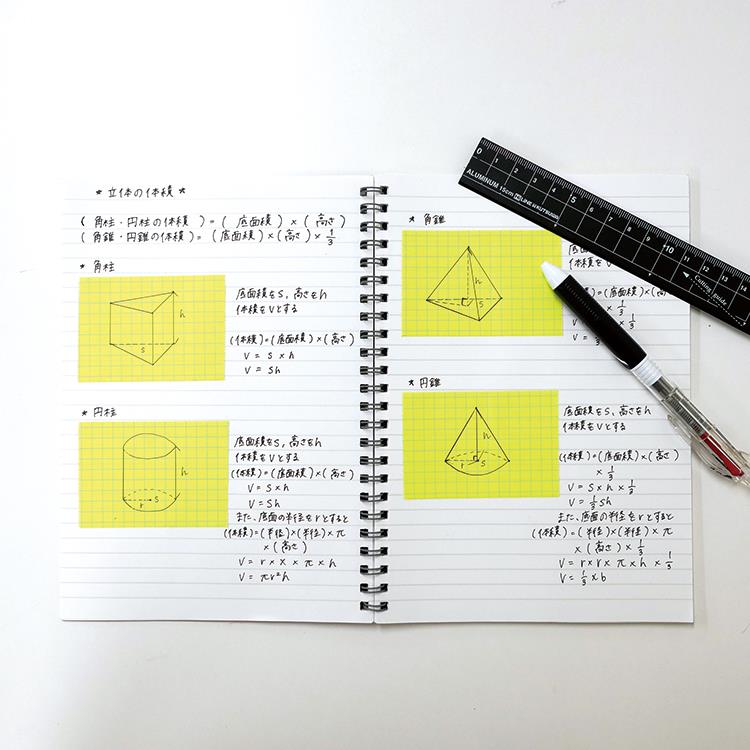 * 立体の体積 *
( 角柱・円柱の体積 ) = ( 底面積 ) × ( 高さ )
( 角錐・円錐の体積 ) = ( 底面積 ) × ( 高さ ) × 1/3
* 角柱
h
S
底面積をS, 高さをh
体積をVとする
(体積) = (底面積) × (高さ)
V = S × h
V = Sh
* 円柱
h
r
S
底面積をS, 高さをh
体積をVとする
(体積) = (底面積) × (高さ)
V = S × h
V = Sh
また、底面の半径をrとすると
(体積) = (半径) × (半径) × π
× (高さ)
V = r × x × π × h
V = πr²h
* 角錐
h
S
底面
体積をV
(体積) = (底面積) × (高
× 1/3
× 1/3
* 円錐
h
r
S
底面積をS, 高さをh
体積をVとする
(体積) = (底面積) × (高さ)
× 1/3
V = S × h × 1/3
V = 1/3 Sh
また、底面の半径をrとすると
(体積) = (半径) × (半径) × π
× (高さ) × 1/3
V = r × r × π × h × 1/3
V = 1/3 × b
0 5 10 11 12 13 14
ALUMINUM 15cm
Cutting guide